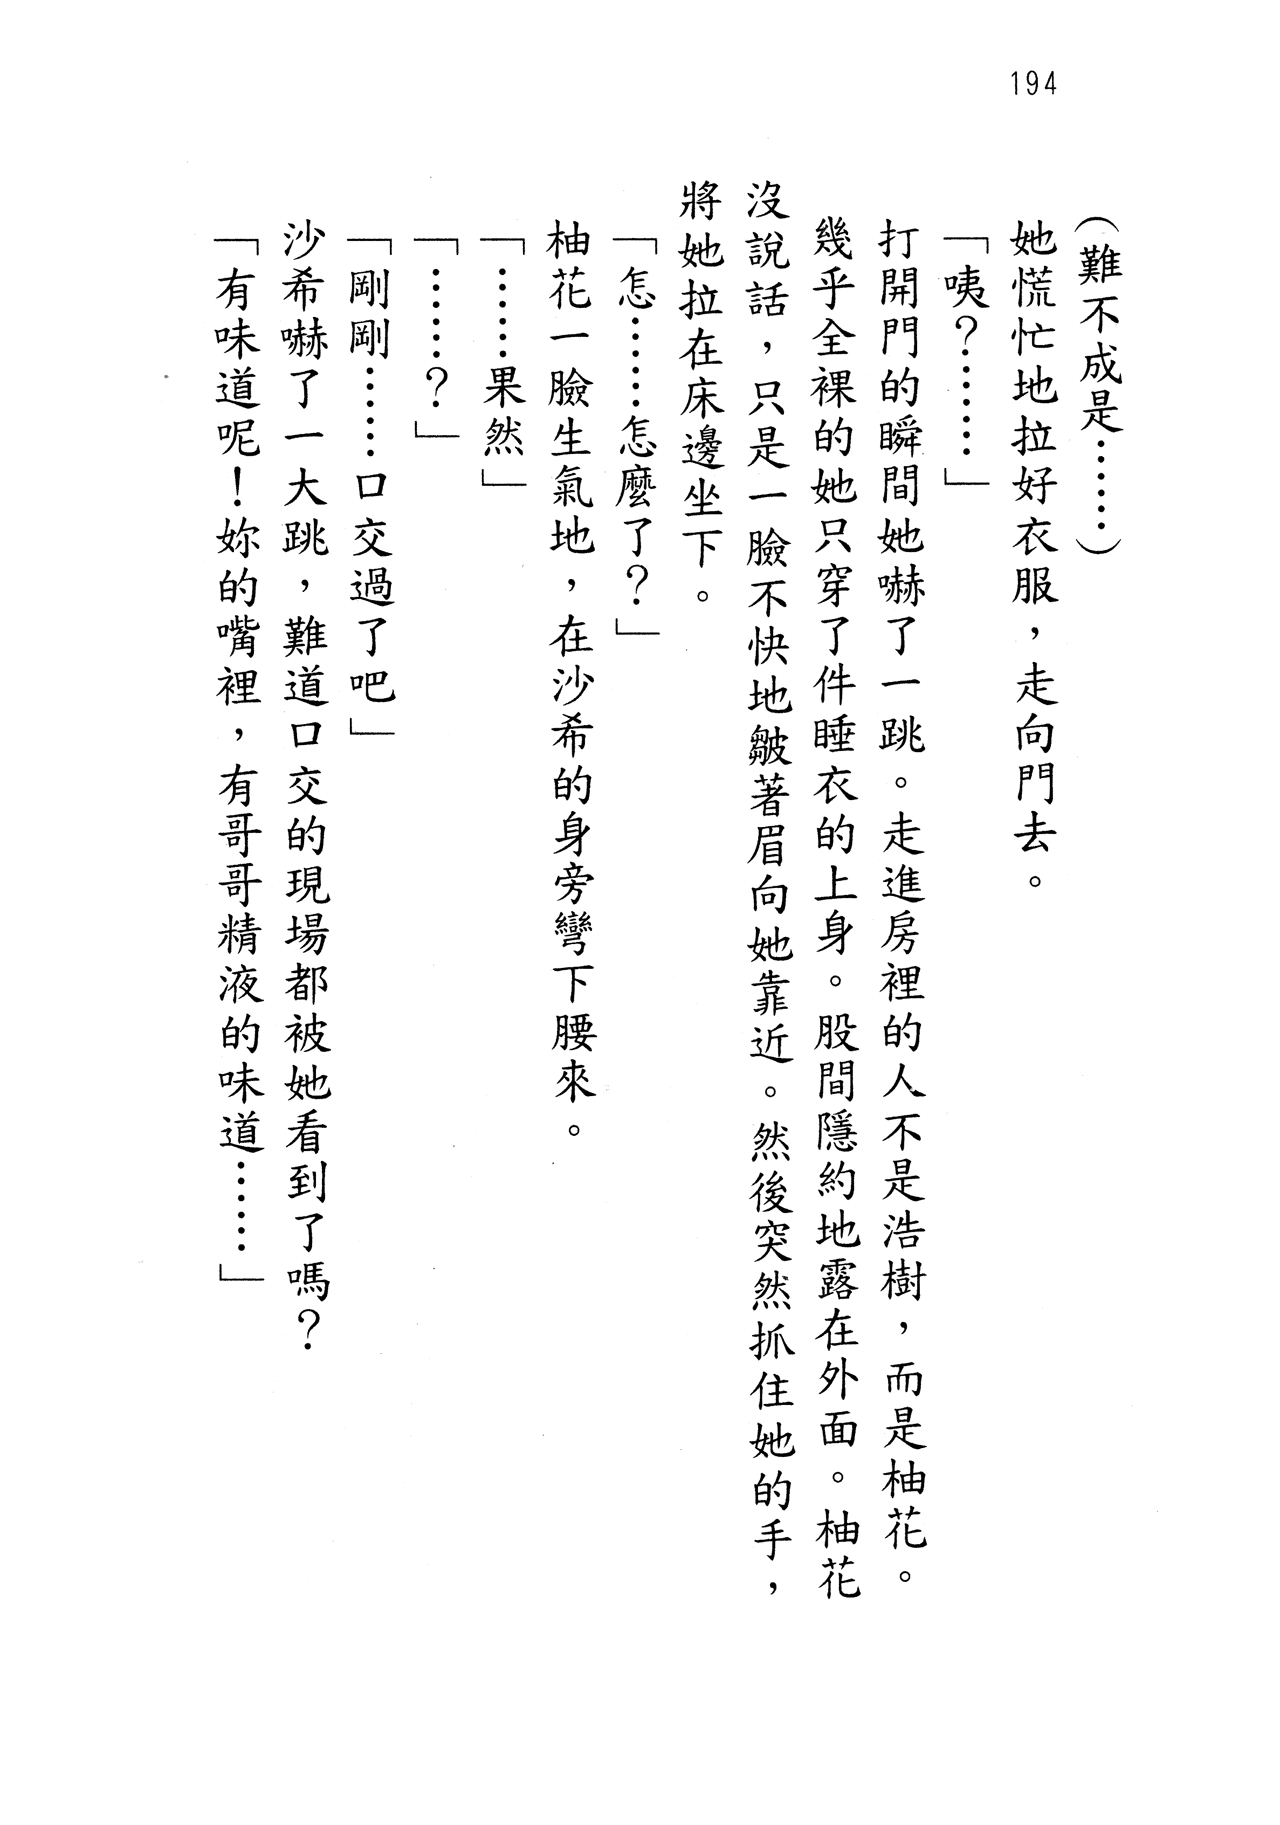 194
（難不成是……）
她慌忙地拉好衣服，走向門去。
「咦？……」
打開門的瞬間她嚇了一跳。走進房裡的人不是浩樹，而是柚花。
幾乎全裸的她只穿了件睡衣的上身。股間隱約地露在外面。柚花
沒說話，只是一臉不快地皺著眉向她靠近。然後突然抓住她的手，
將她拉在床邊坐下。
「怎……怎麼了？」
柚花一臉生氣地，在沙希的身旁彎下腰來。
「……果然」
「……？」
「剛剛……口交過了吧」
沙希嚇了一大跳，難道口交的現場都被她看到了嗎？
「有味道呢！妳的嘴裡，有哥哥精液的味道……」